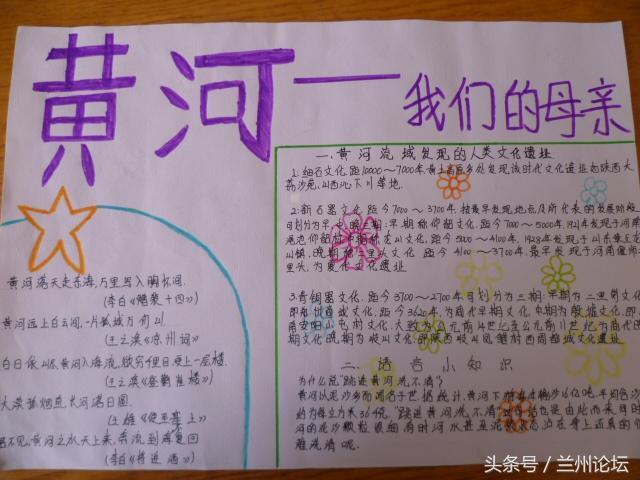 黄河——我们的母亲
一、黄河流域发现的人类文化遗址
1.细石文化,距10000~7000年黄土高原多处发现该时代文化遗址如陕西大
荔沙苑,山西沁下川等地.
2.新石器文化,距今7000~3700年,按最早发现地点及所代表的发展阶段
可划分为早中晚三期:早期称仰韶文化,距今7000~5000年,1921年发现于河南
渑池仰韶村,中期称龙山文化,距今5000~4100年,1928年发现于山东章丘龙
山镇,晚期称二里头文化 距今4100~3700年,最早发现于河南偃师二
里头,为夏代文化遗址
3.青铜器文化,距今3700~2700年可划分为三期:早期为二里岗文化
即郑州商城文化,距今3620年,为商代早期文化,中期为殷墟文化,即
南安阳小屯村文化,大致为公元前14世纪至公元前11世纪为商代
期文化晚期为岐山文化即陕西岐山凤雏村西周商城文化遗址
二、语言小知识
为什么说"跳进黄河洗不清"?
黄河以泥沙多而闻名于世据统计,黄河下游年输沙16亿吨,平均含沙
约为每立方米36.4克,"跳进黄河洗不清"
河的泥沙颗粒很细有时河水甚至泥浆
难洗清呢.
黄河落天走东海,万里写入胸怀间.
(李白《赠裴十四》)
黄河远上白云间,一片孤城万仞山
(王之涣《凉州词》
白日依山尽,黄河入海流,欲穷但目更上一层楼.
(王之涣《登鹳雀楼》)
大漠孤烟直,长河落日圆.
(王维《使至塞上》
君不见,黄河之水天上来,奔流到海复回
(李白《将进酒》)
头条号/兰州论坛